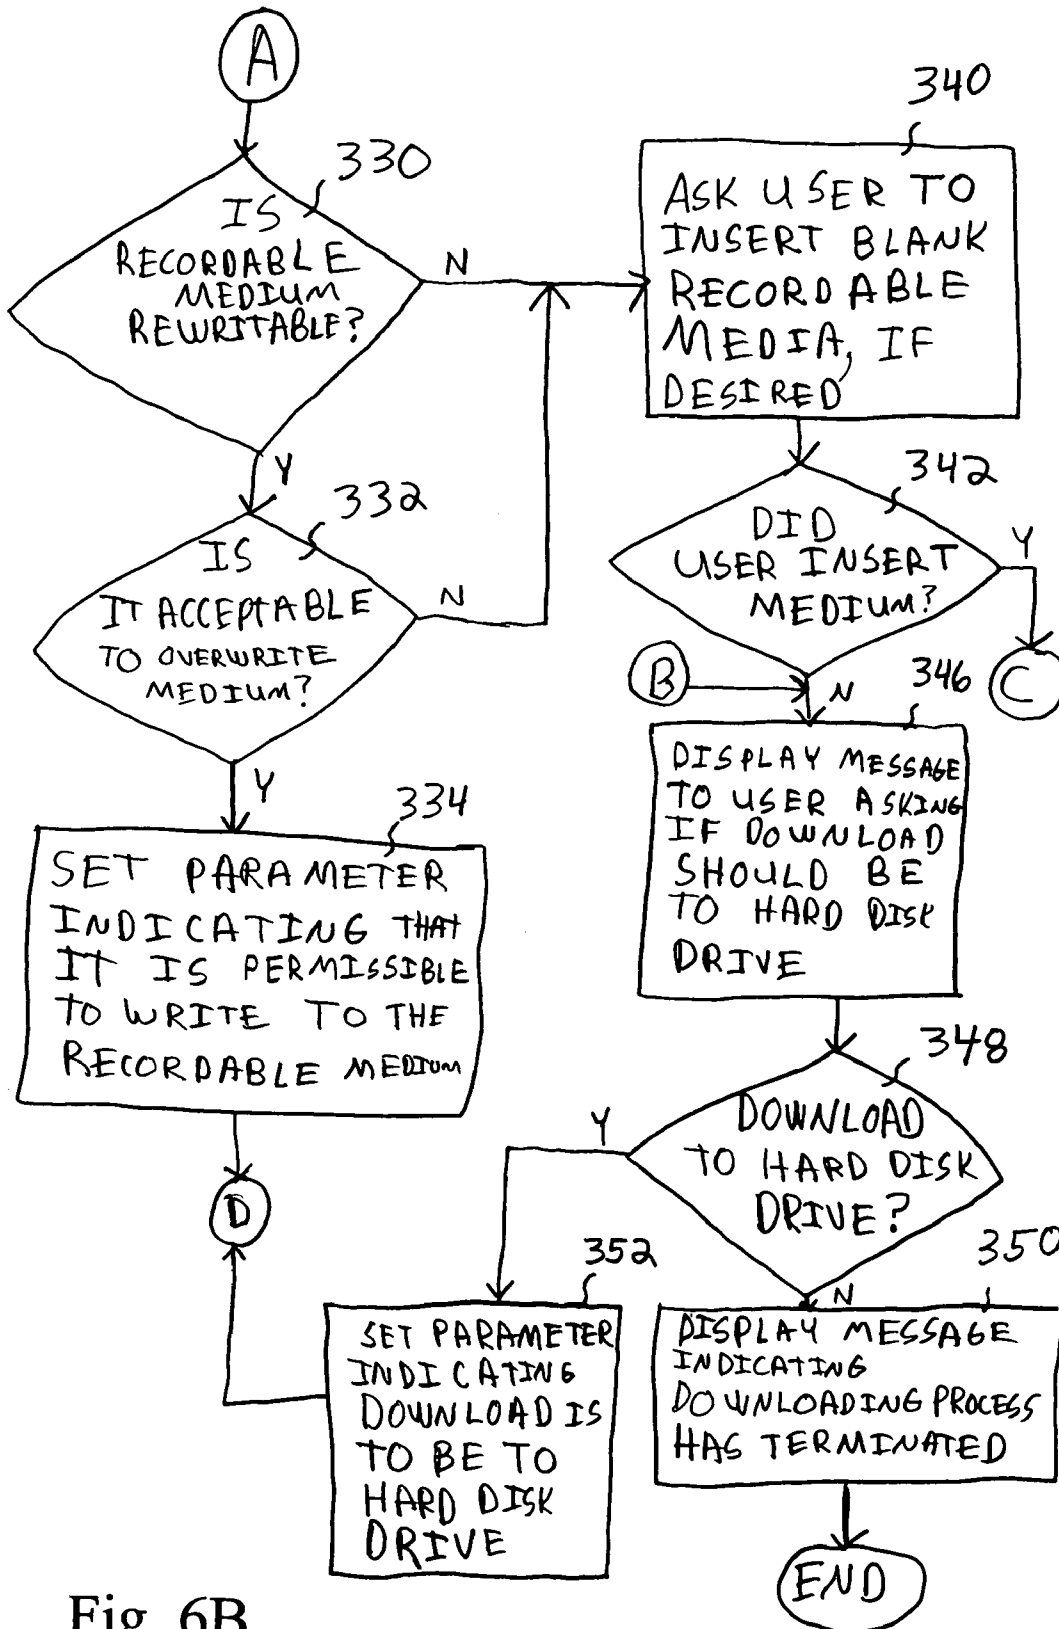 A
330
IS
RECORDABLE
MEDIUM
REWRITABLE?
N
Y
332
IS
IT ACCEPTABLE
TO OVERWRITE
MEDIUM?
N
Y
334
SET PARAMETER
INDICATING THAT
IT IS PERMISSIBLE
TO WRITE TO THE
RECORDABLE MEDIUM
D
340
ASK USER TO
INSERT BLANK
RECORDABLE
MEDIA, IF
DESIRED
342
DID
USER INSERT
MEDIUM?
Y
C
B
N
346
DISPLAY MESSAGE
TO USER ASKING
IF DOWNLOAD
SHOULD BE
TO HARD DISK
DRIVE
348
DOWNLOAD
TO HARD DISK
DRIVE?
Y
N
352
SET PARAMETER
INDICATING
DOWNLOAD IS
TO BE TO
HARD DISK
DRIVE
350
DISPLAY MESSAGE
INDICATING
DOWNLOADING PROCESS
HAS TERMINATED
END
Fig. 6B